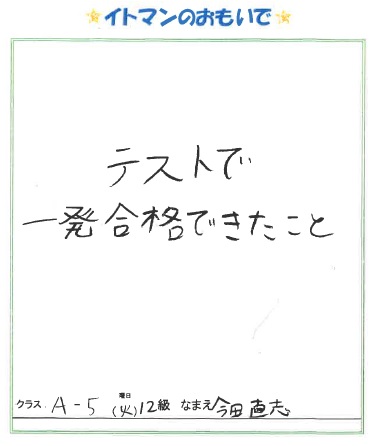 イトマンのおもいで
テストで
一発合格できたこと
クラス A-5 (火)曜日 12級 なまえ 今田直志